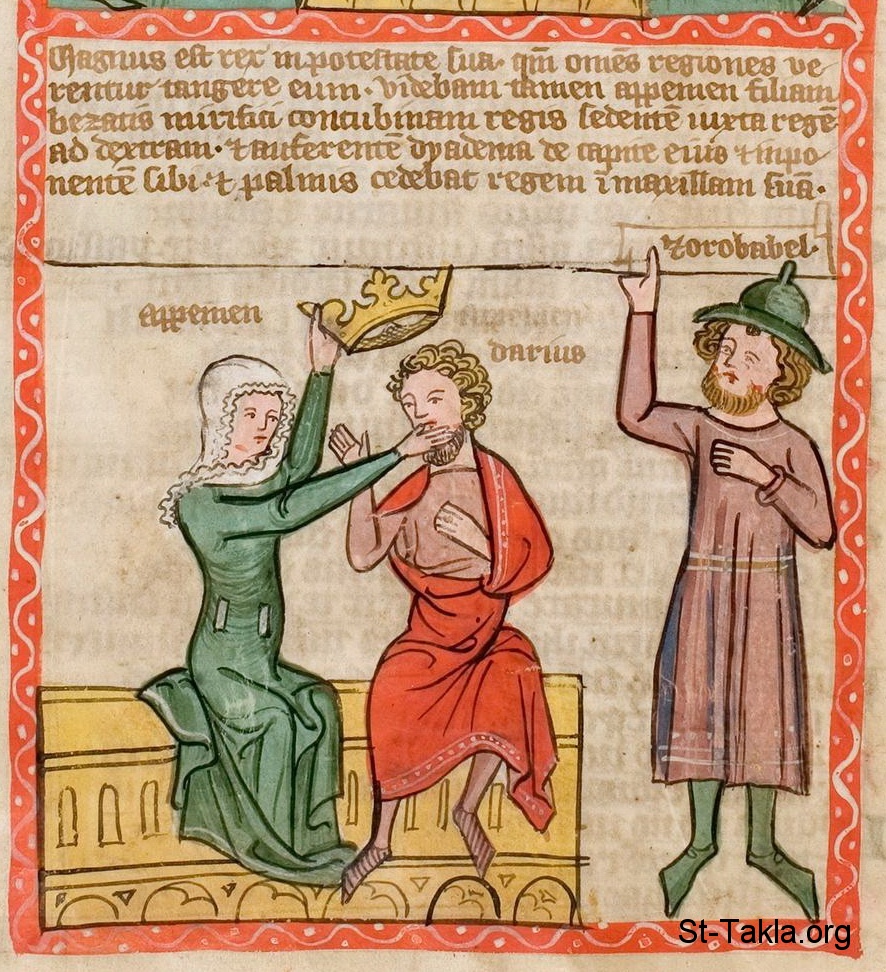 Magnus est rex in potestate sua· qm̄ omēs regiones ve
rentur tangere eum· videbam tamen appemen filiam
bezatis mirifici concubinam regis sedentē iuxta regē
ad dextram· ⁊ auferentē dyadema de capite eius ⁊ inpo
nentē sibi· ⁊ palmis cedebat regem ī maxillam suā·
zorobabel·
appemen
darius
St-Takla.org